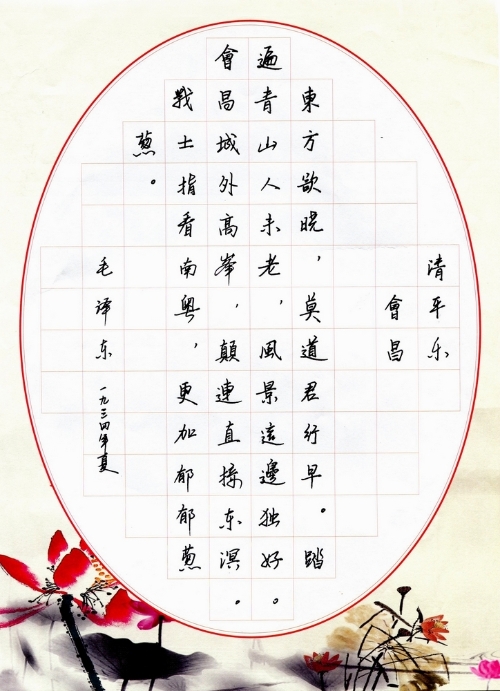 清平乐
會昌
東方欲晓，莫道君行早。踏
遍青山人未老，風景這邊独好。
會昌城外高峯，顛連直接东溟。
戰士指看南粤，更加郁郁葱
葱。
毛泽东 一九三四年夏